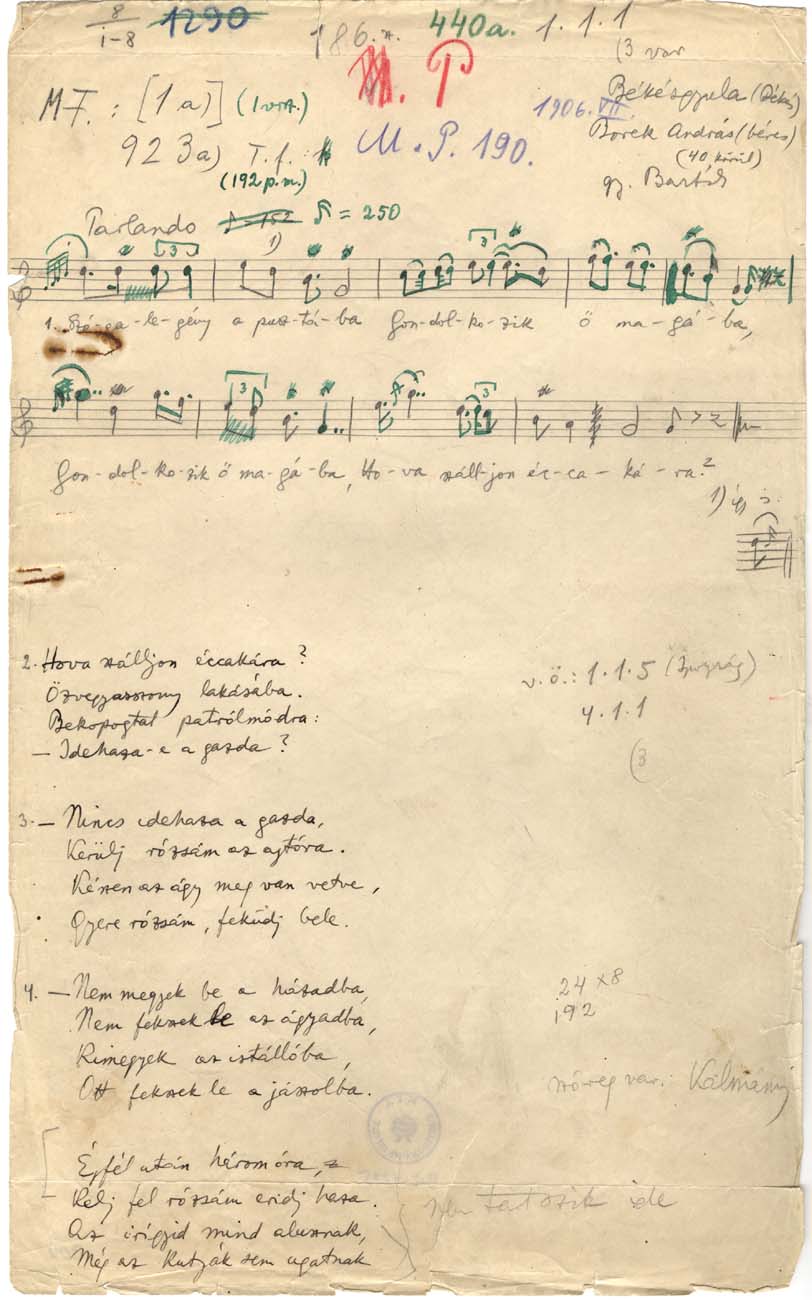 8
1290
i-8
186.
440a.
1. 1. 1
(3 var
M. P
MF.: [1 a)] (1 vrt.)
1906. VII.
Békésgyula (Békés)
923a) T.f.
M. P. 190.
Borek András (béres)
(40 körül)
(192 p.m.)
gy. Bartók
Parlando = 250
3
1)
3
1. Szó-ga-le-gény a pusz-tá-ba Gon-dol-ko-zik ő ma-gá-ba,
3
3
Gon-dol-ko-zik ő ma-gá-ba, Ho-va száll-jon éc-ca-ká-ra?
1)
2. Hova szálljon éccakára?
Özvegyasszony lakásába.
Bekopogtat patrólmódra:
— Idehaza-e a gazda?
v.ö.: 1.1.5
4.1.1
(3
3. — Nincs idehaza a gazda,
Kerülj rózsám az ajtóra.
Készen az ágy meg van vetve,
Gyere rózsám, feküdj bele.
4. — Nem megyek be a házadba,
Nem fekszek le az ágyadba,
Kimegyek az istállóba,
Ott fekszek le a jászolba.
24 x 8
192
szöveg var.: Kálmány
Éjfél után három óra,
Kelj fel rózsám eridj haza.
Az irígyid mind alusznak,
Még az kutyák sem ugatnak
Nem tatozik ide